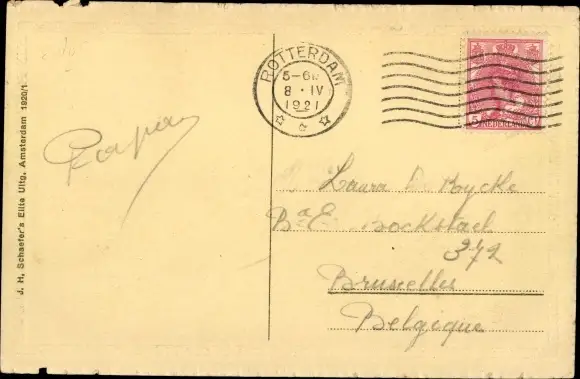 J. H. Schaefer's Elite Uitg. Amsterdam 1920/1
Papa
ROTTERDAM
8 · IV
1921
5 NEDERLAND
Laura D
Bd E. Bockstael
372
Bruxelles
Belgique